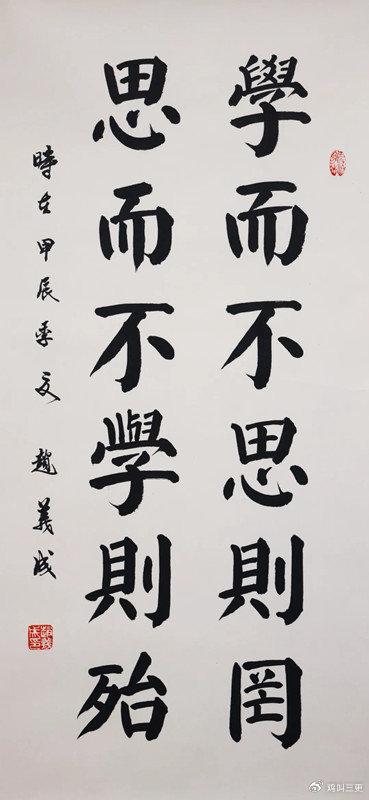 學而不思則罔
思而不學則殆
時在甲辰季夏 趙義成
@鸡叫三更